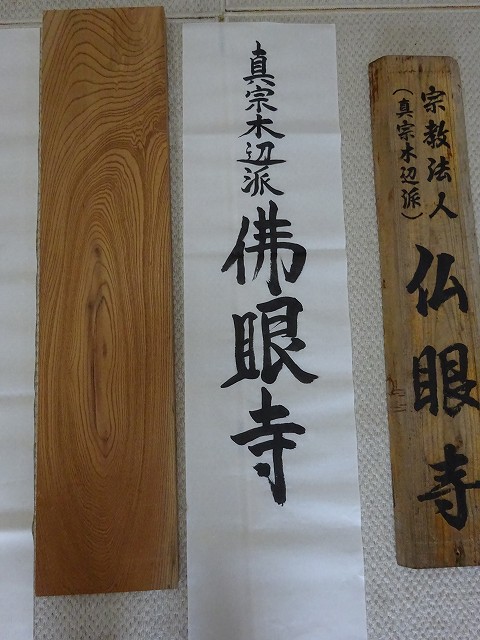 宗教法人
(真宗木辺派)
仏眼寺
真宗木辺派
佛眼寺